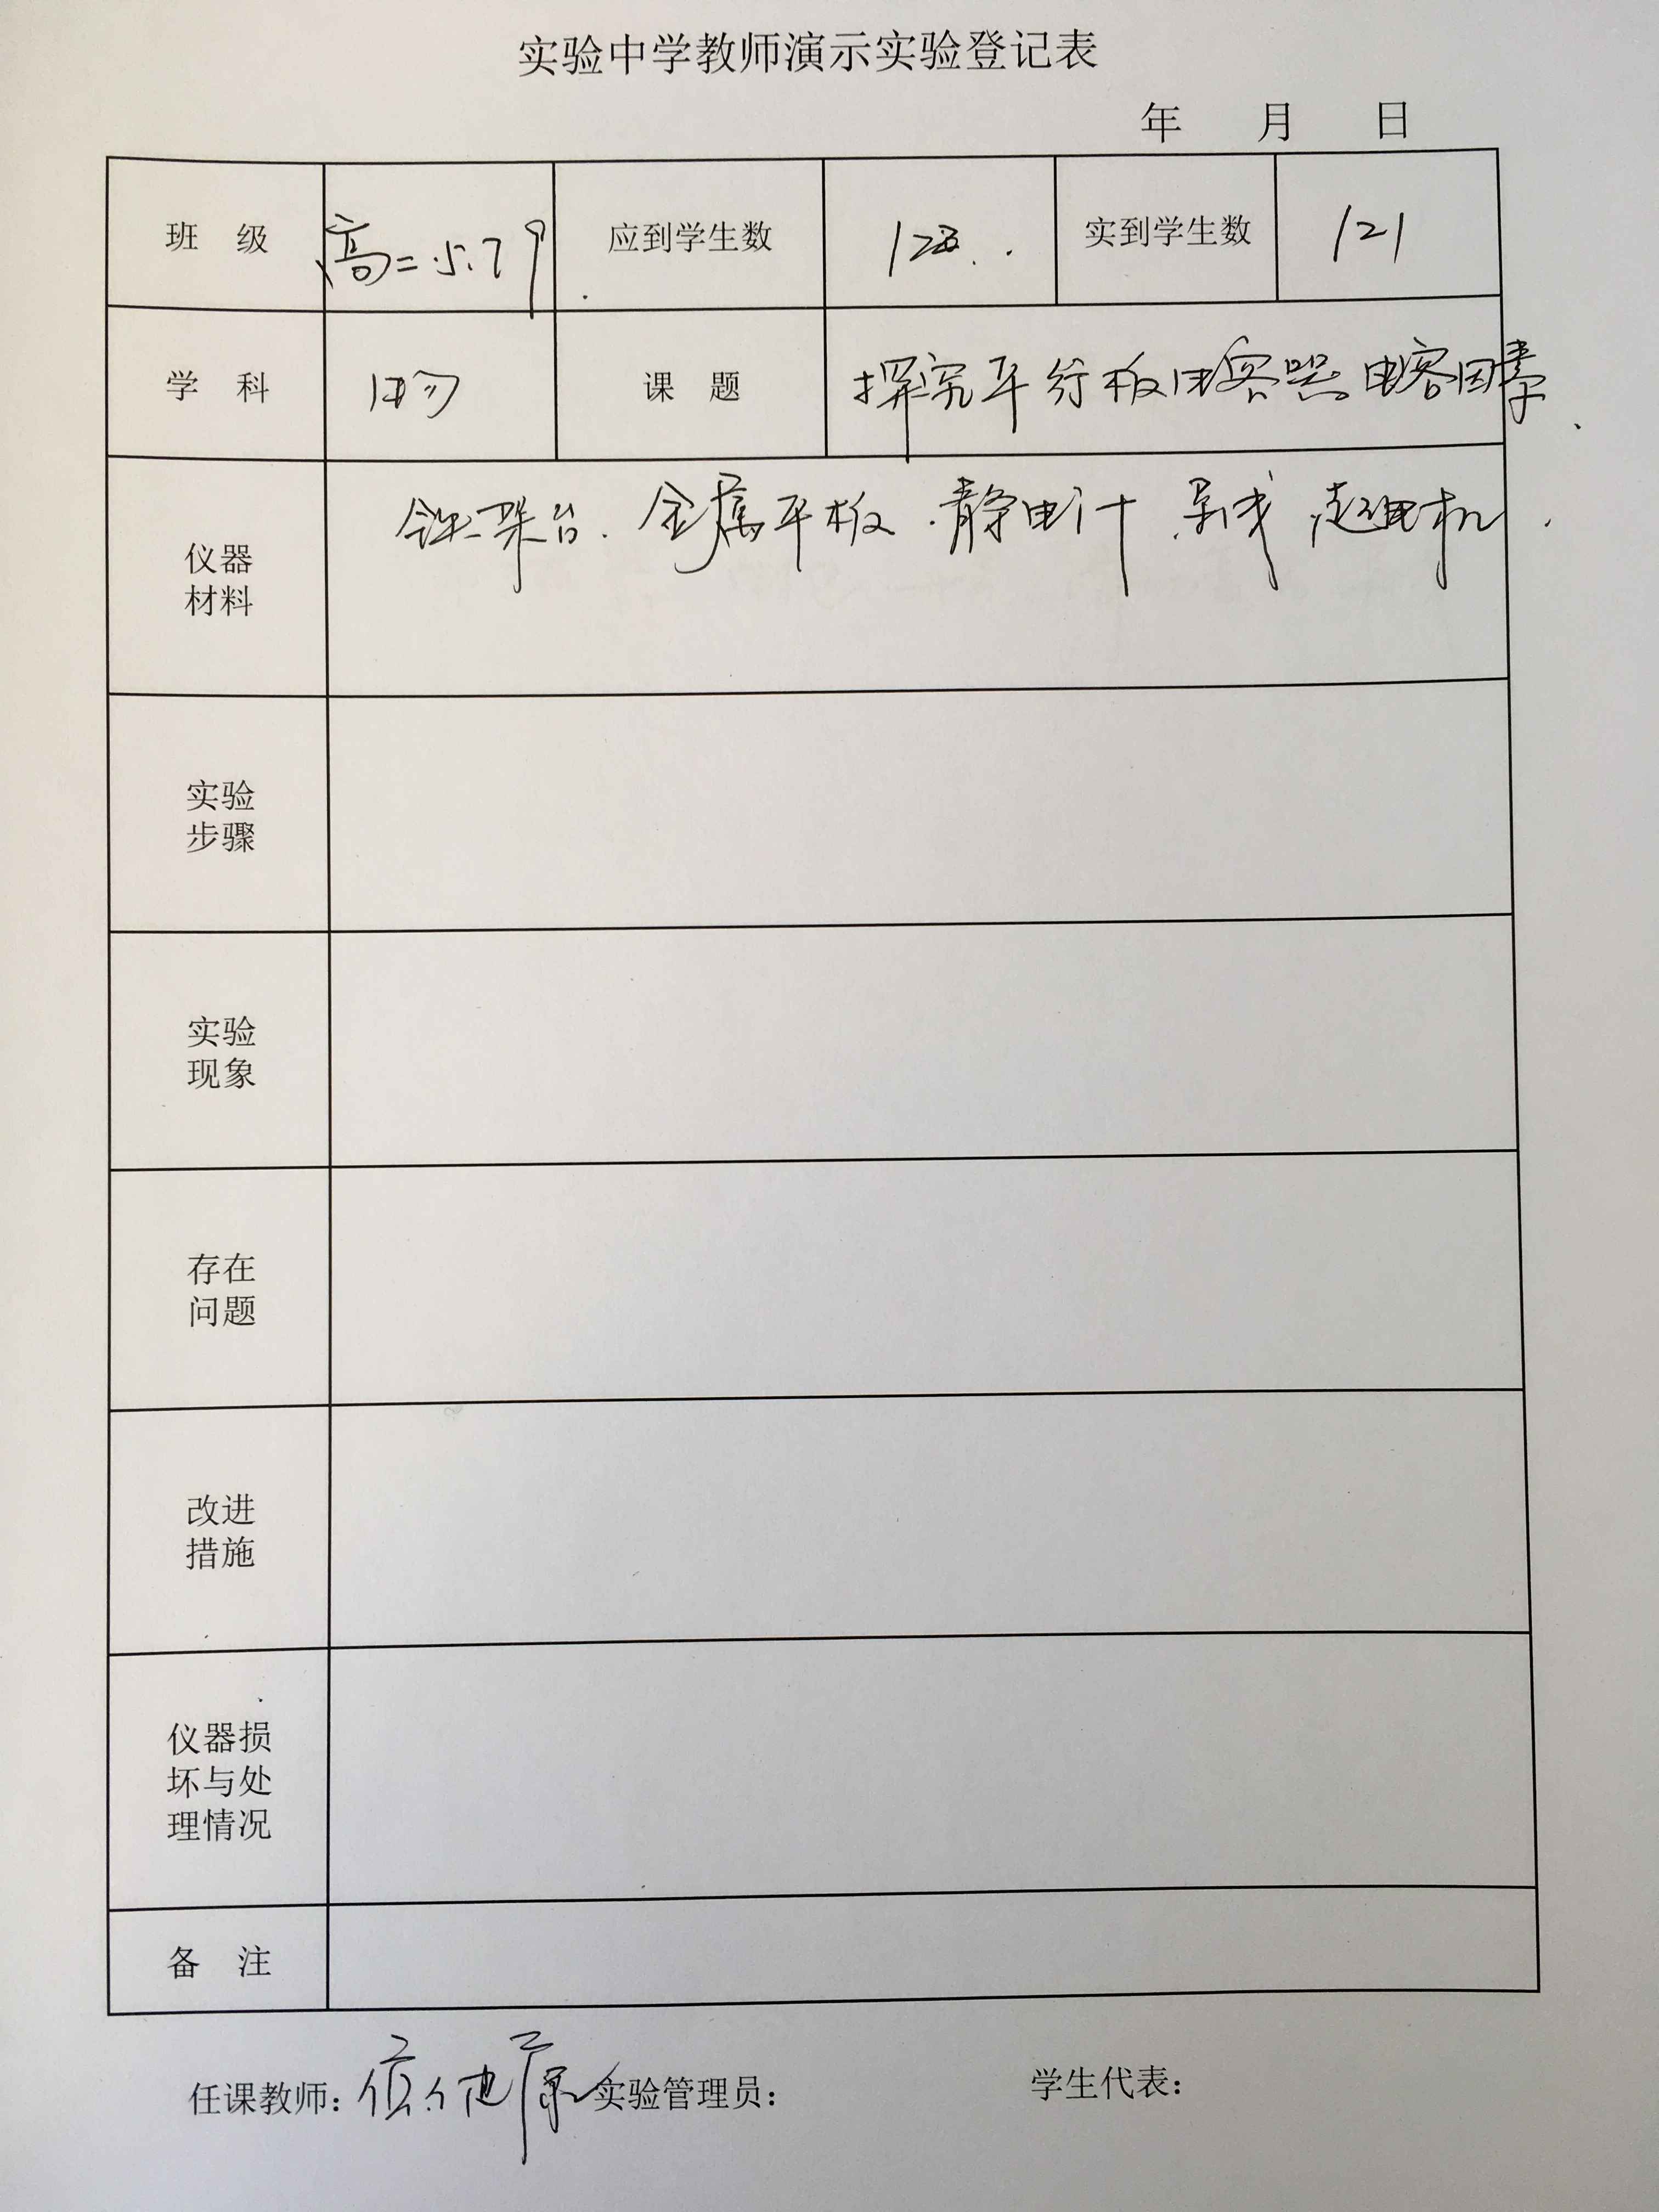 实验中学教师演示实验登记表
年 月 日
班 级 高二.5.79 应到学生数 实到学生数 121
学 科 物 课 题 探究平行板电容器电容因素.
仪器 铁架台. 金属平板.静电计.导线.起电机.
材料
实验
步骤
实验
现象
存在
问题
改进
措施
仪器损
坏与处
理情况
备 注
任课教师: 实验管理员: 学生代表: